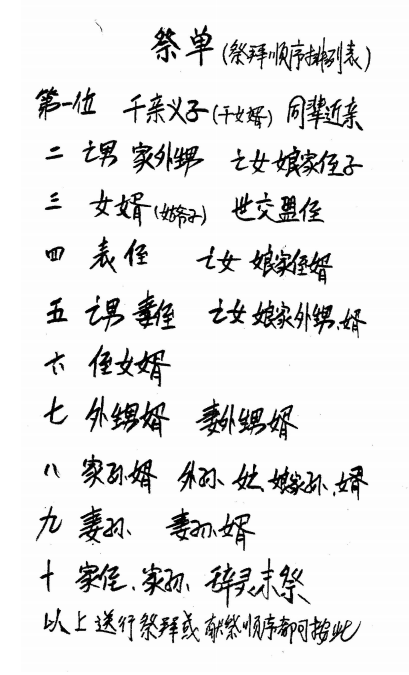 祭单(祭拜顺序排列表)
第一位 干亲义子(干女婿) 同辈近亲
二 亡男 家外甥 亡女 娘家侄子
三 女婿 世交盟侄
四 表侄 亡女 娘家侄婿
五 亡男 妻侄 亡女 娘家外甥、婿
六 侄女婿
七 外甥婿 妻外甥婿
八 家孙婿 外孙、女、娘家孙、婿
九 妻孙、 妻孙婿
十 家侄、家孙、辞灵末祭
以上送行祭拜或献祭顺序都可按此